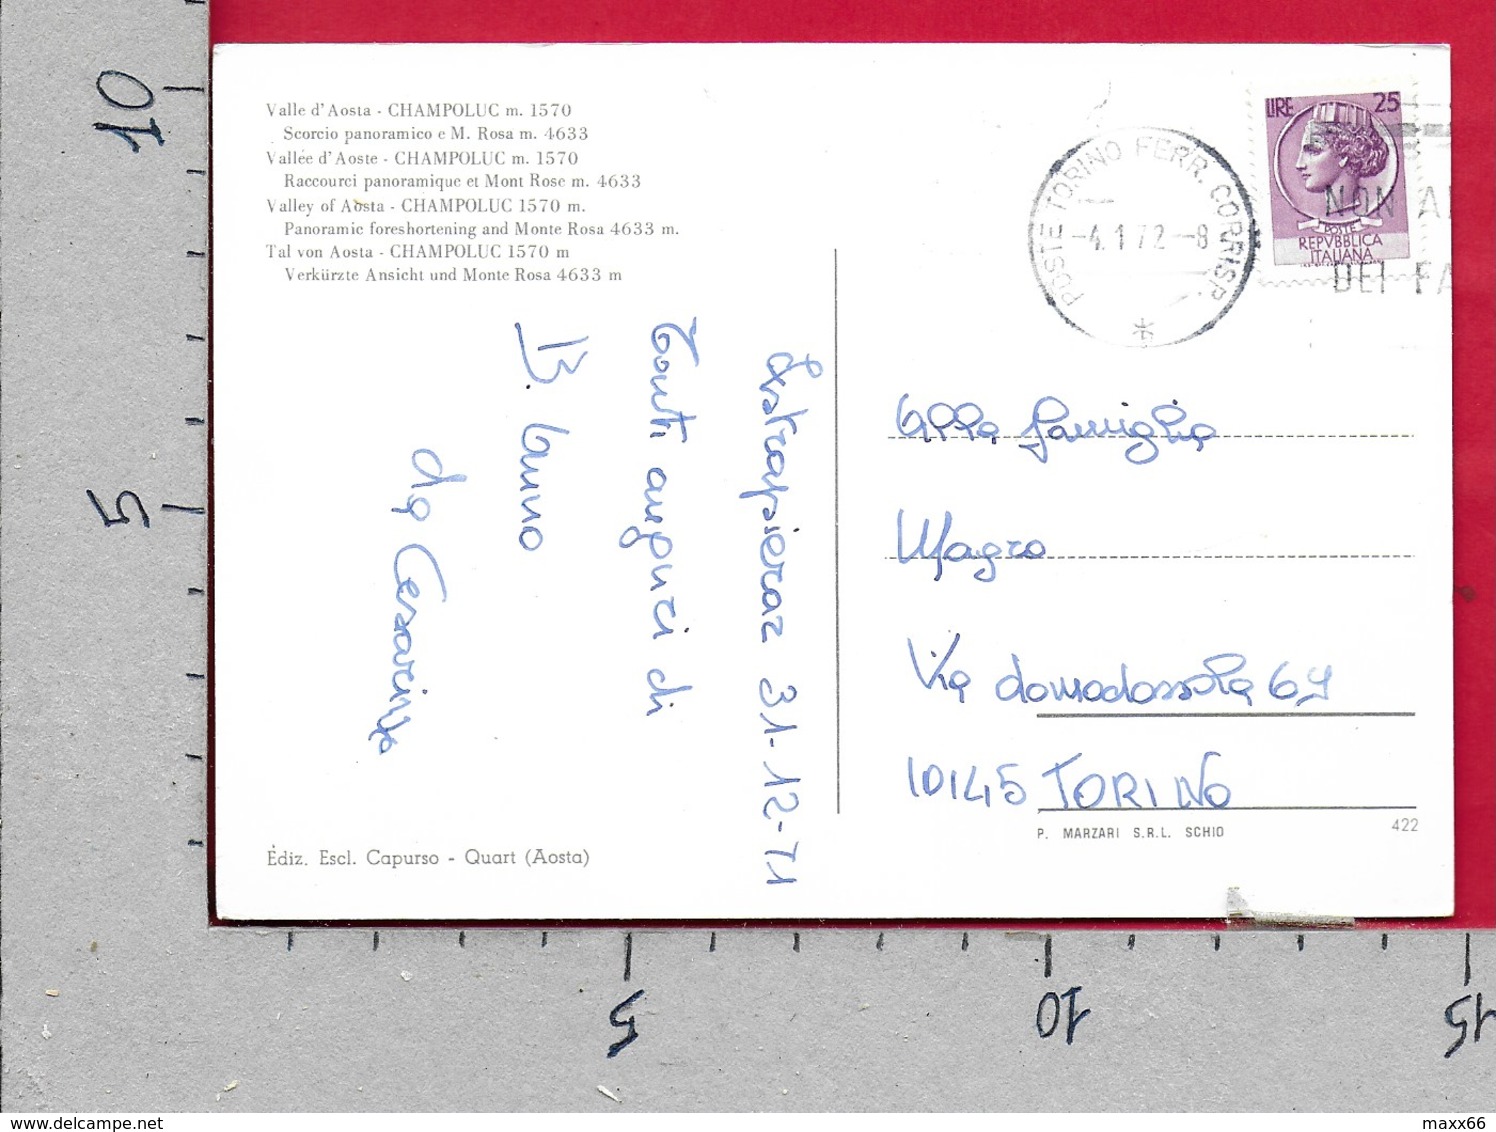 Valle d'Aosta - CHAMPOLUC m. 1570
Scorcio panoramico e M. Rosa m. 4633
Vallée d'Aoste - CHAMPOLUC m. 1570
Raccourci panoramique et Mont Rose m. 4633
Valley of Aosta - CHAMPOLUC 1570 m.
Panoramic foreshortening and Monte Rosa 4633 m.
Tal von Aosta - CHAMPOLUC 1570 m
Verkürzte Ansicht und Monte Rosa 4633 m
Estrapieraz 31-12-71
Tanti auguri di
B. Anno
da Cesarina
Ediz. Escl. Capurso - Quart (Aosta)
POSTE TORINO FERR. CORRISP.
-4.1.72-8
LIRE 25
POSTE
REPVBBLICA
ITALIANA
NON
DEI
Alla famiglia
Magro
Via domodossola 69
10145 TORINO
P. MARZARI S.R.L. SCHIO
422
10
5
5
10
15
delcampe.net
maxx66